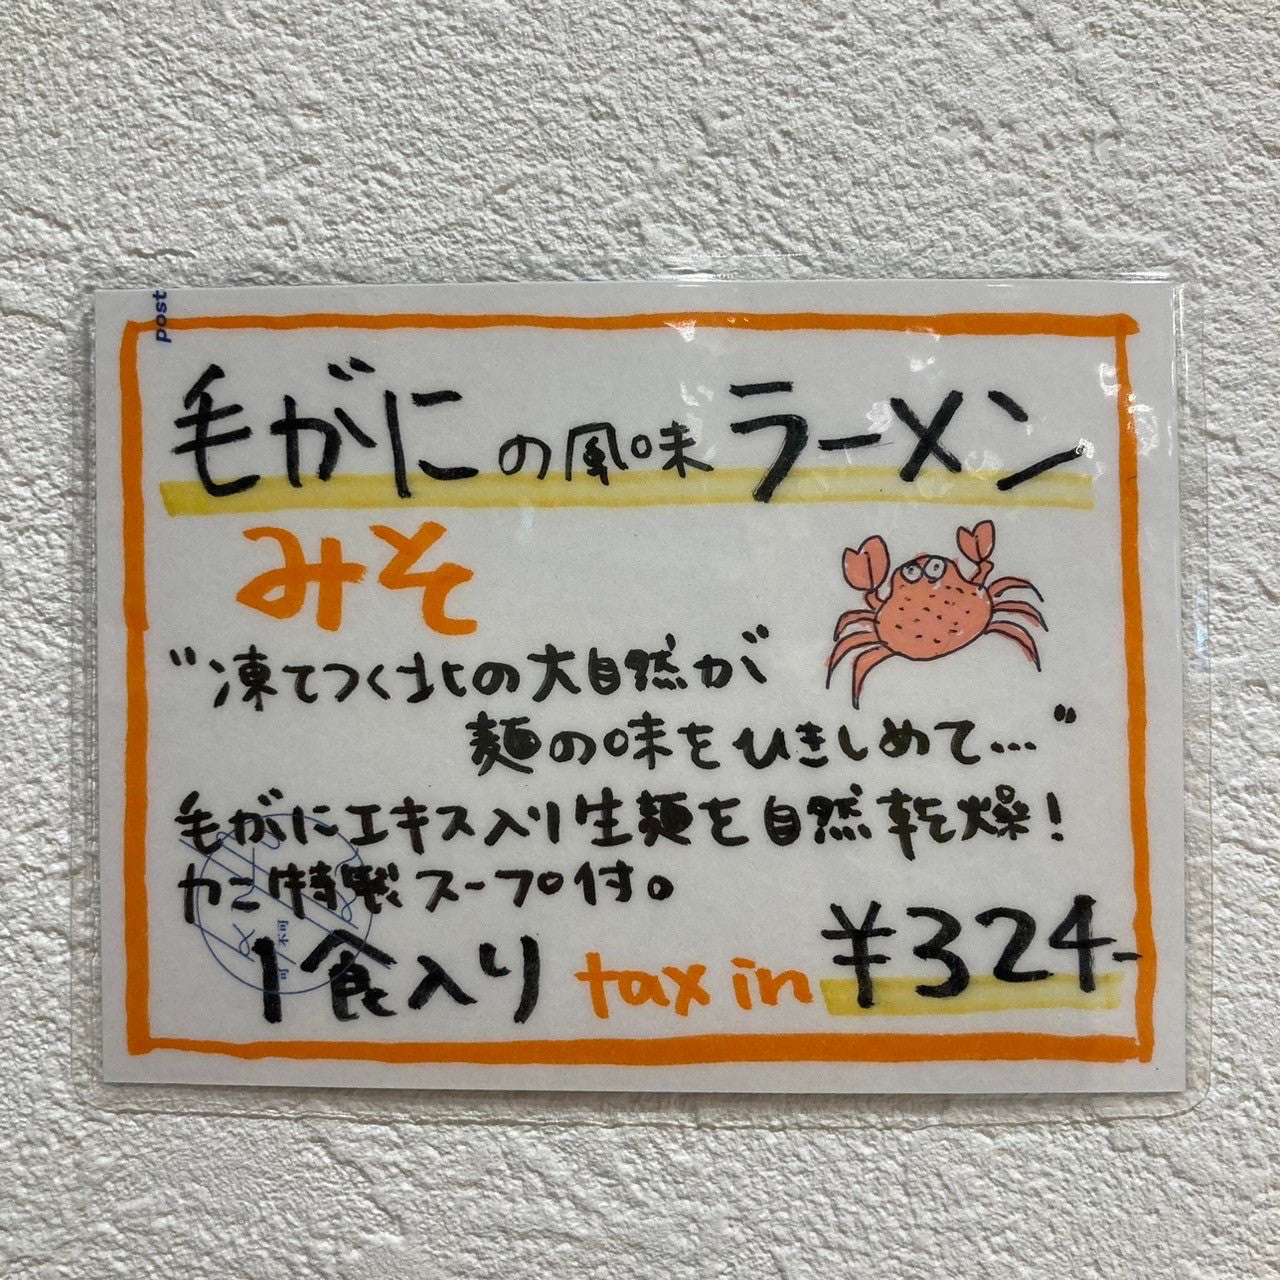 post
毛がにの風味ラーメン
みそ
"凍てつく北の大自然が
麺の味をひきしめて…"
毛がにエキス入り生麺を自然乾燥!
カニ特製スープ付。
1食入り tax in ¥324-